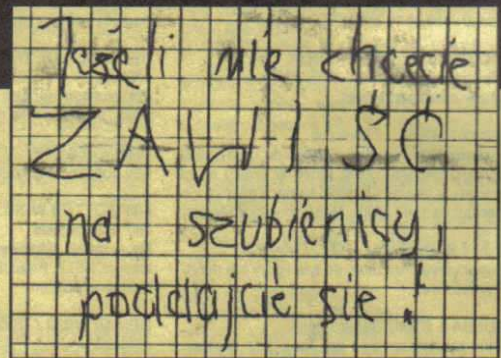 Jeżeli nie chcecie
ZAWISŚĆ
na szubienicy,
poddajcie się!